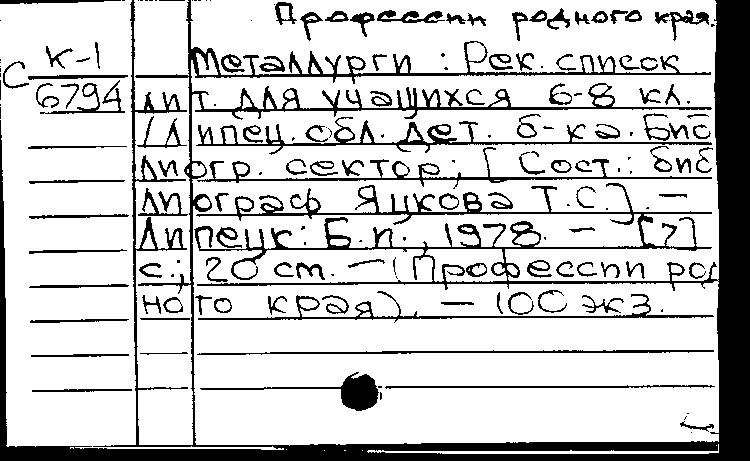 Профессии родного края.
К-1
С 6794
Металлурги : Рек. список
лит. для учащихся 6-8 кл.
/Липец. обл. дет. б-ка. Биб
лиогр. сектор; [Сост.: биб
лиограф Яцкова Т.С.]. —
Липецк: Б.и., 1978. — [7]
с.; 20 см. — (Профессии род
ного края). — 100 экз.